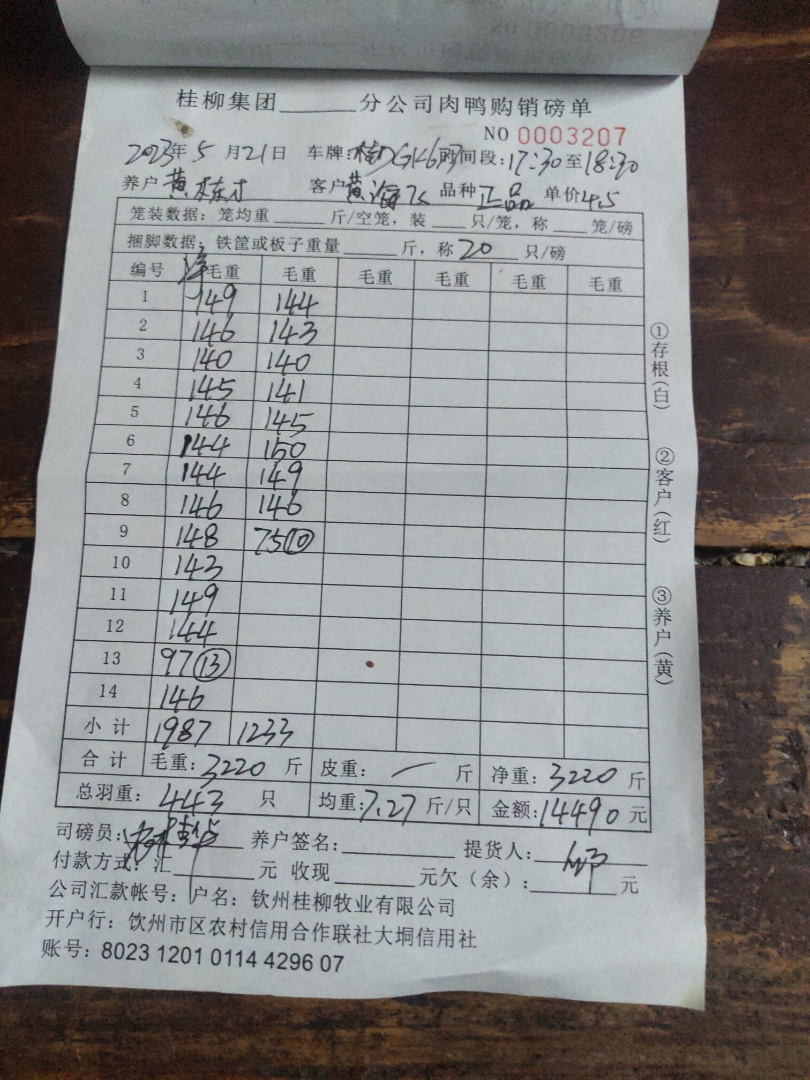 NO 0003206
桂柳集团______分公司肉鸭购销磅单
NO 0003207
2023年5月21日 车牌: 时间段:17:30至18:30
养户 黄栋才 客户 黄海飞 品种 正品 单价 4.5
笼装数据: 笼均重____斤/空笼, 装___只/笼, 称___笼/磅
捆脚数据: 铁筐或板子重量_____斤, 称20只/磅
编号 净毛重 毛重 毛重 毛重 毛重 毛重
1 149 144
2 146 143
3 140 140
4 145 141
5 146 145
6 144 150
7 144 149
8 146 146
9 148 75⑩
10 143
11 149
12 144
13 97⑬
14 146
小计 1987 1233
合计 毛重: 3220 斤 皮重: 一 斤 净重: 3220 斤
总羽重: 443 只 均重: 7.27 斤/只 金额: 14490 元
司磅员: 养户签名: 提货人:
付款方式: 汇______元 收现______元欠(余): ______元
公司汇款帐号: 户名: 钦州桂柳牧业有限公司
开户行: 饮州市区农村信用合作联社大垌信用社
账号: 8023 1201 0114 4296 07
①存根(白)
②客户(红)
③养户(黄)